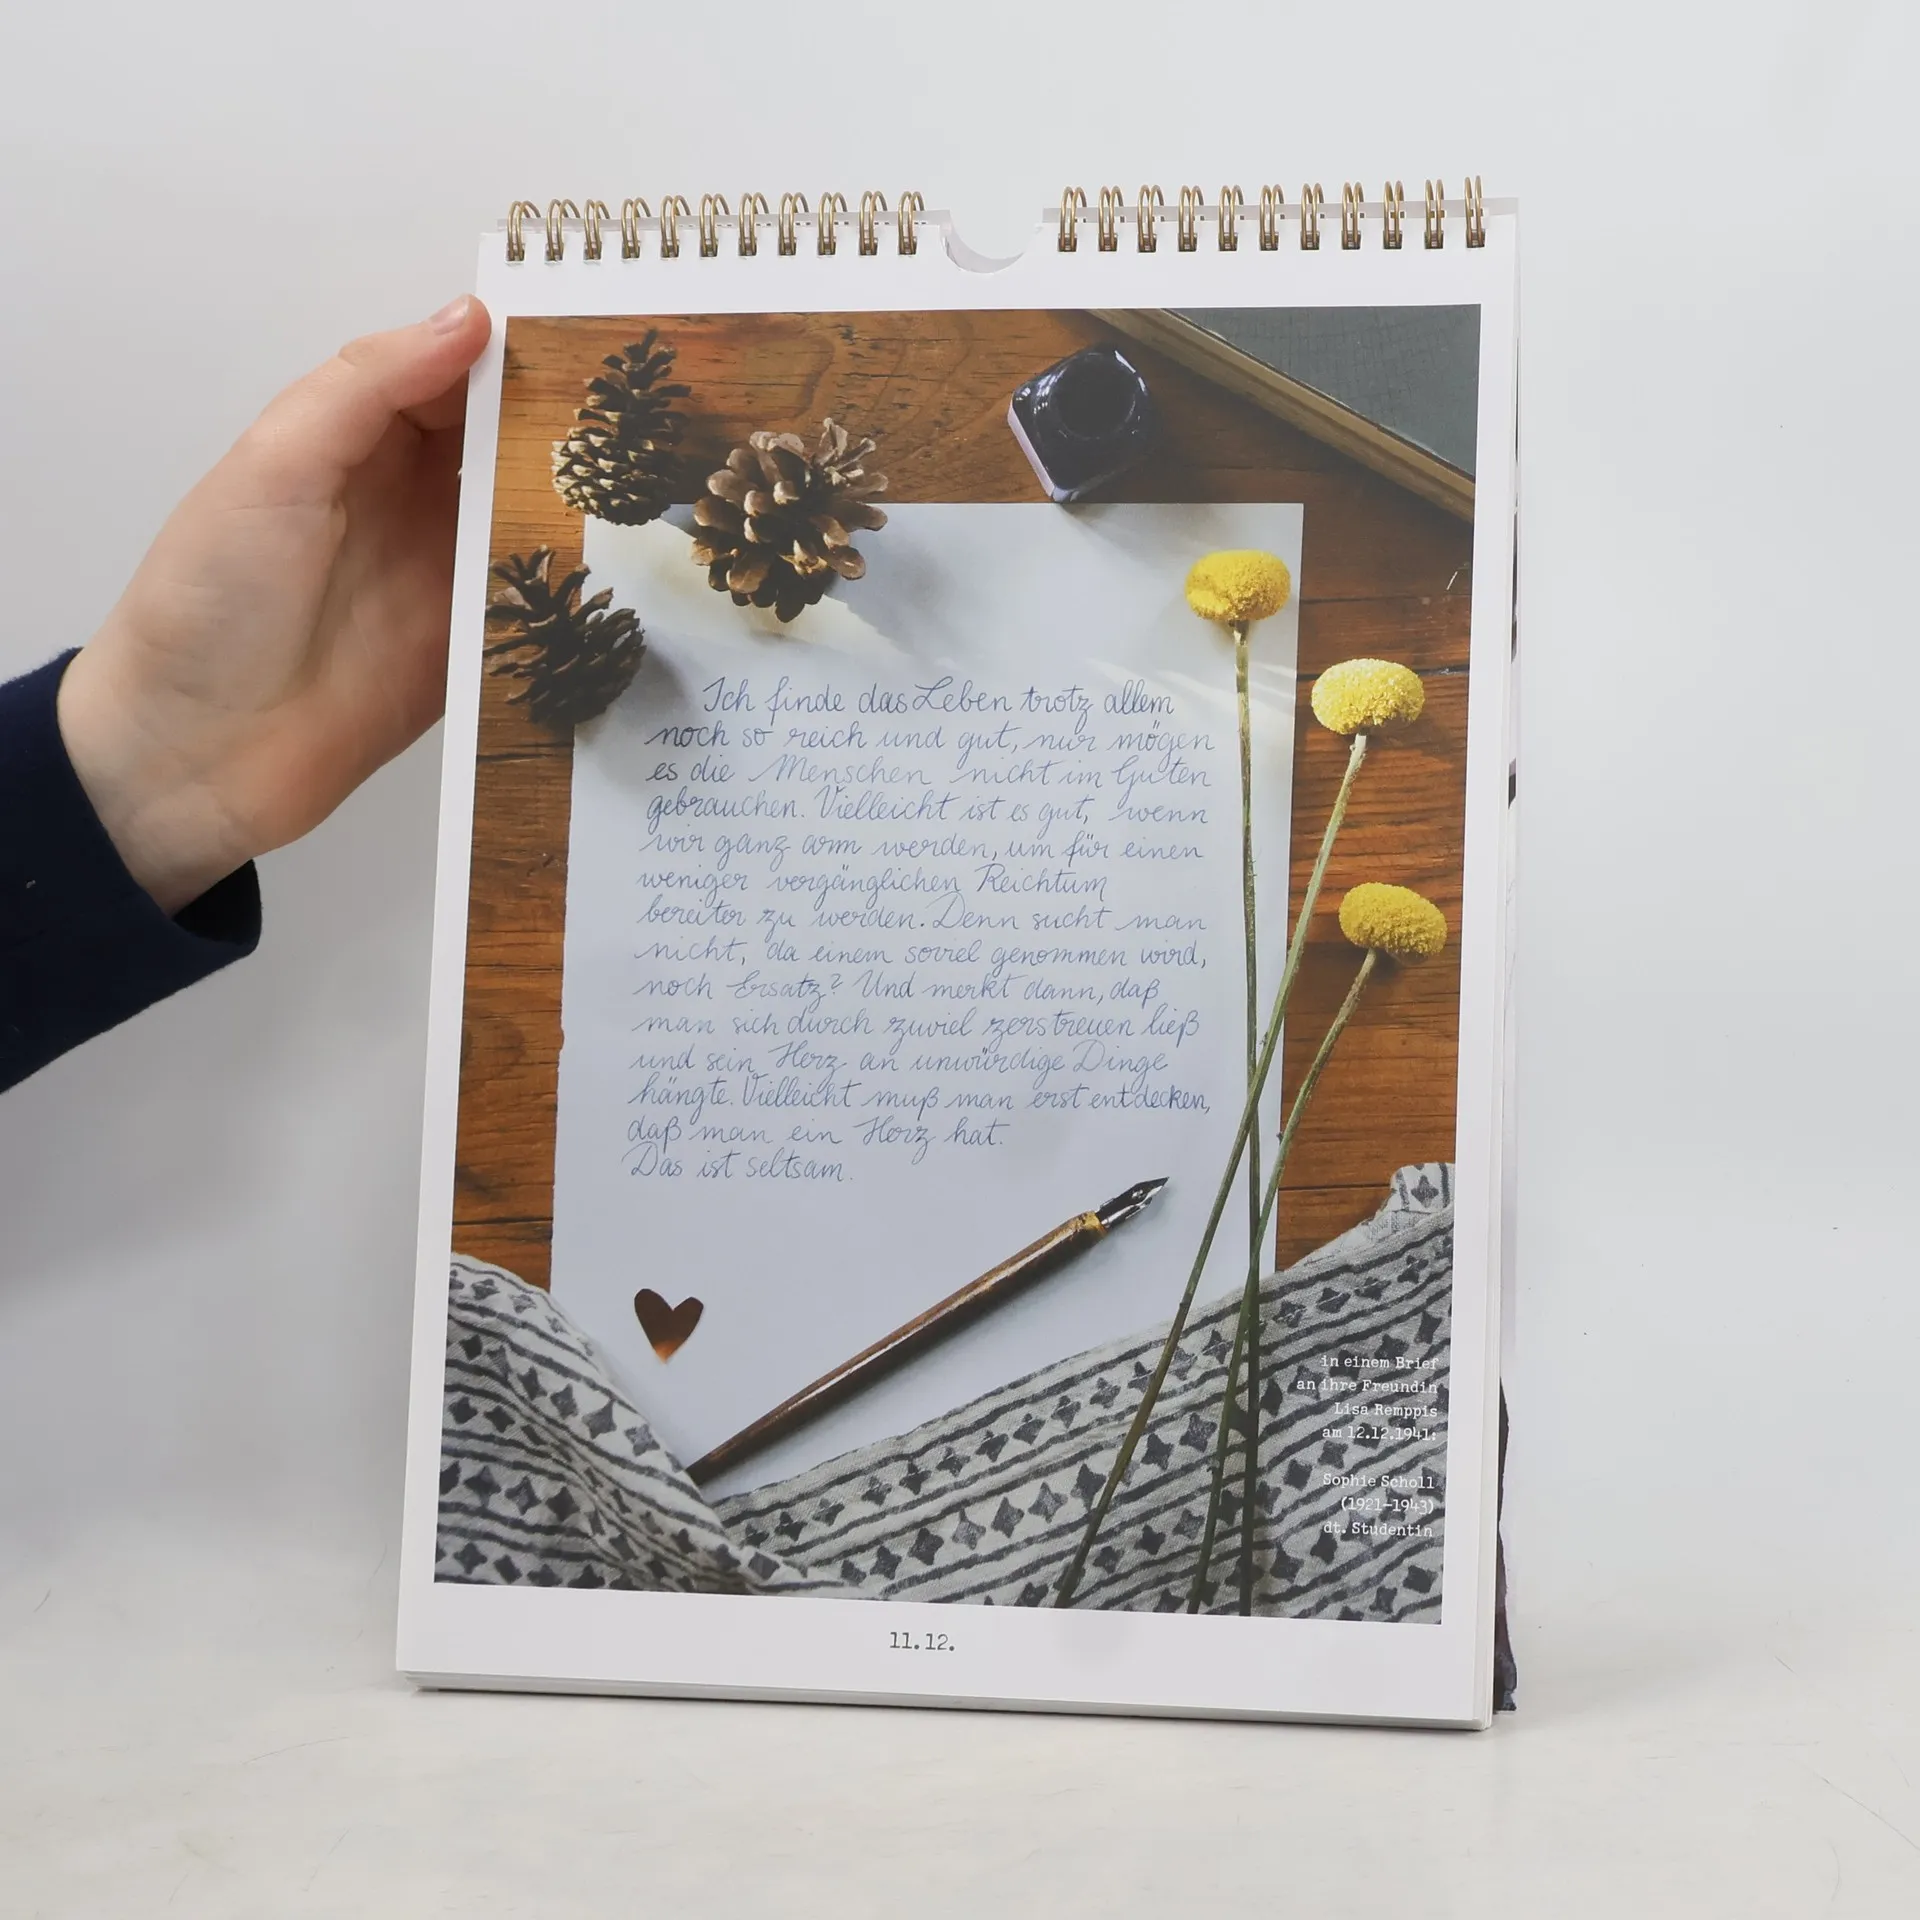 Ich finde das Leben trotz allem
noch so reich und gut, nur mögen
es die Menschen nicht im Guten
gebrauchen. Vielleicht ist es gut, wenn
wir ganz arm werden, um für einen
weniger vergänglichen Reichtum
bereiter zu werden. Denn sucht man
nicht, da einem soviel genommen wird,
noch Ersatz? Und merkt dann, daß
man sich durch zuviel zerstreuen ließ
und sein Herz an unwürdige Dinge
hängte. Vielleicht muß man erst entdecken,
daß man ein Herz hat.
Das ist seltsam.
in einem Brief
an ihre Freundin
Lisa Remppis
am 12.12.1941:
Sophie Scholl
(1921-1943)
dt. Studentin
11.12.